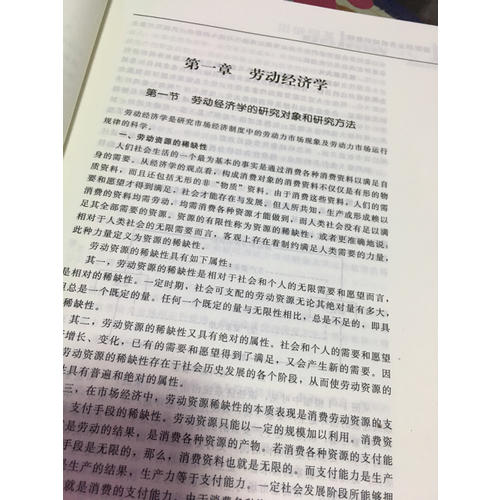 第一章 劳动经济学
第一节 劳动经济学的研究对象和研究方法
劳动经济学是研究市场经济制度中的劳动力市场现象及劳动力市场运行
规律的科学。
一、劳动资源的稀缺性
人们社会生活的一个最为基本的事实是通过消费各种消费资料以满足自
身的需要。从经济学的观点看,构成消费对象的消费资料不仅仅是有形的物
质资料,而且还包括无形的非“物质”资料。由于消费这些资料,人们的需
要和愿望才得到满足,社会才能存在与发展。但人所共知,生产或形成赖以
消费的资料均需劳动,均需消费各种资源才能做到,而人类社会没有足以满
足其全部需要的资源。资源的有限性称为资源的稀缺性,或者更准确地说,
相对于人类社会的无限需要而言,客观上存在着制约满足人类需要的力量,
此种力量定义为资源的稀缺性。
劳动资源的稀缺性具有如下属性:
其一,劳动资源的稀缺性是相对于社会和个人的无限需要和愿望而言,
是相对的稀缺性。一定时期,社会可支配的劳动资源无论其绝对量有多大,
但总是一个既定的量。任何一个既定的量与无限性相比,总是不足的,即具
稀缺性。
其二,劳动资源的稀缺性又具有绝对的属性。社会和个人的需要和愿望
增长、变化,已有的需要和愿望得到了满足,又会产生新的需要。因
劳动资源的稀缺性存在于社会历史发展的各个阶段,从而使劳动资源的
具有普遍和绝对的属性。
三,在市场经济中,劳动资源稀缺性的本质表现是消费劳动资源的支
支付手段的稀缺性。劳动资源只能以一定的规模加以利用。消费资
是劳动的结果,是消费各种资源的产物。若消费各种资源的支
手段是无限的,那么,消费资料也就是无限的。而支付能力是生产
生产的结果,生产力等于支付能力。一定社会发展阶段所能拥
费的支付能力,由于消费各种